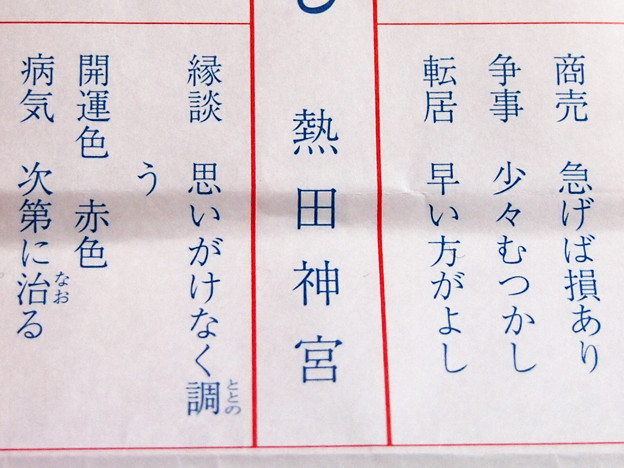 商売 急げば損あり
争事 少々むつかし
転居 早い方がよし
熱田神宮
縁談 思いがけなく調
ととの
う
開運色 赤色
病気 次第に治る
なお